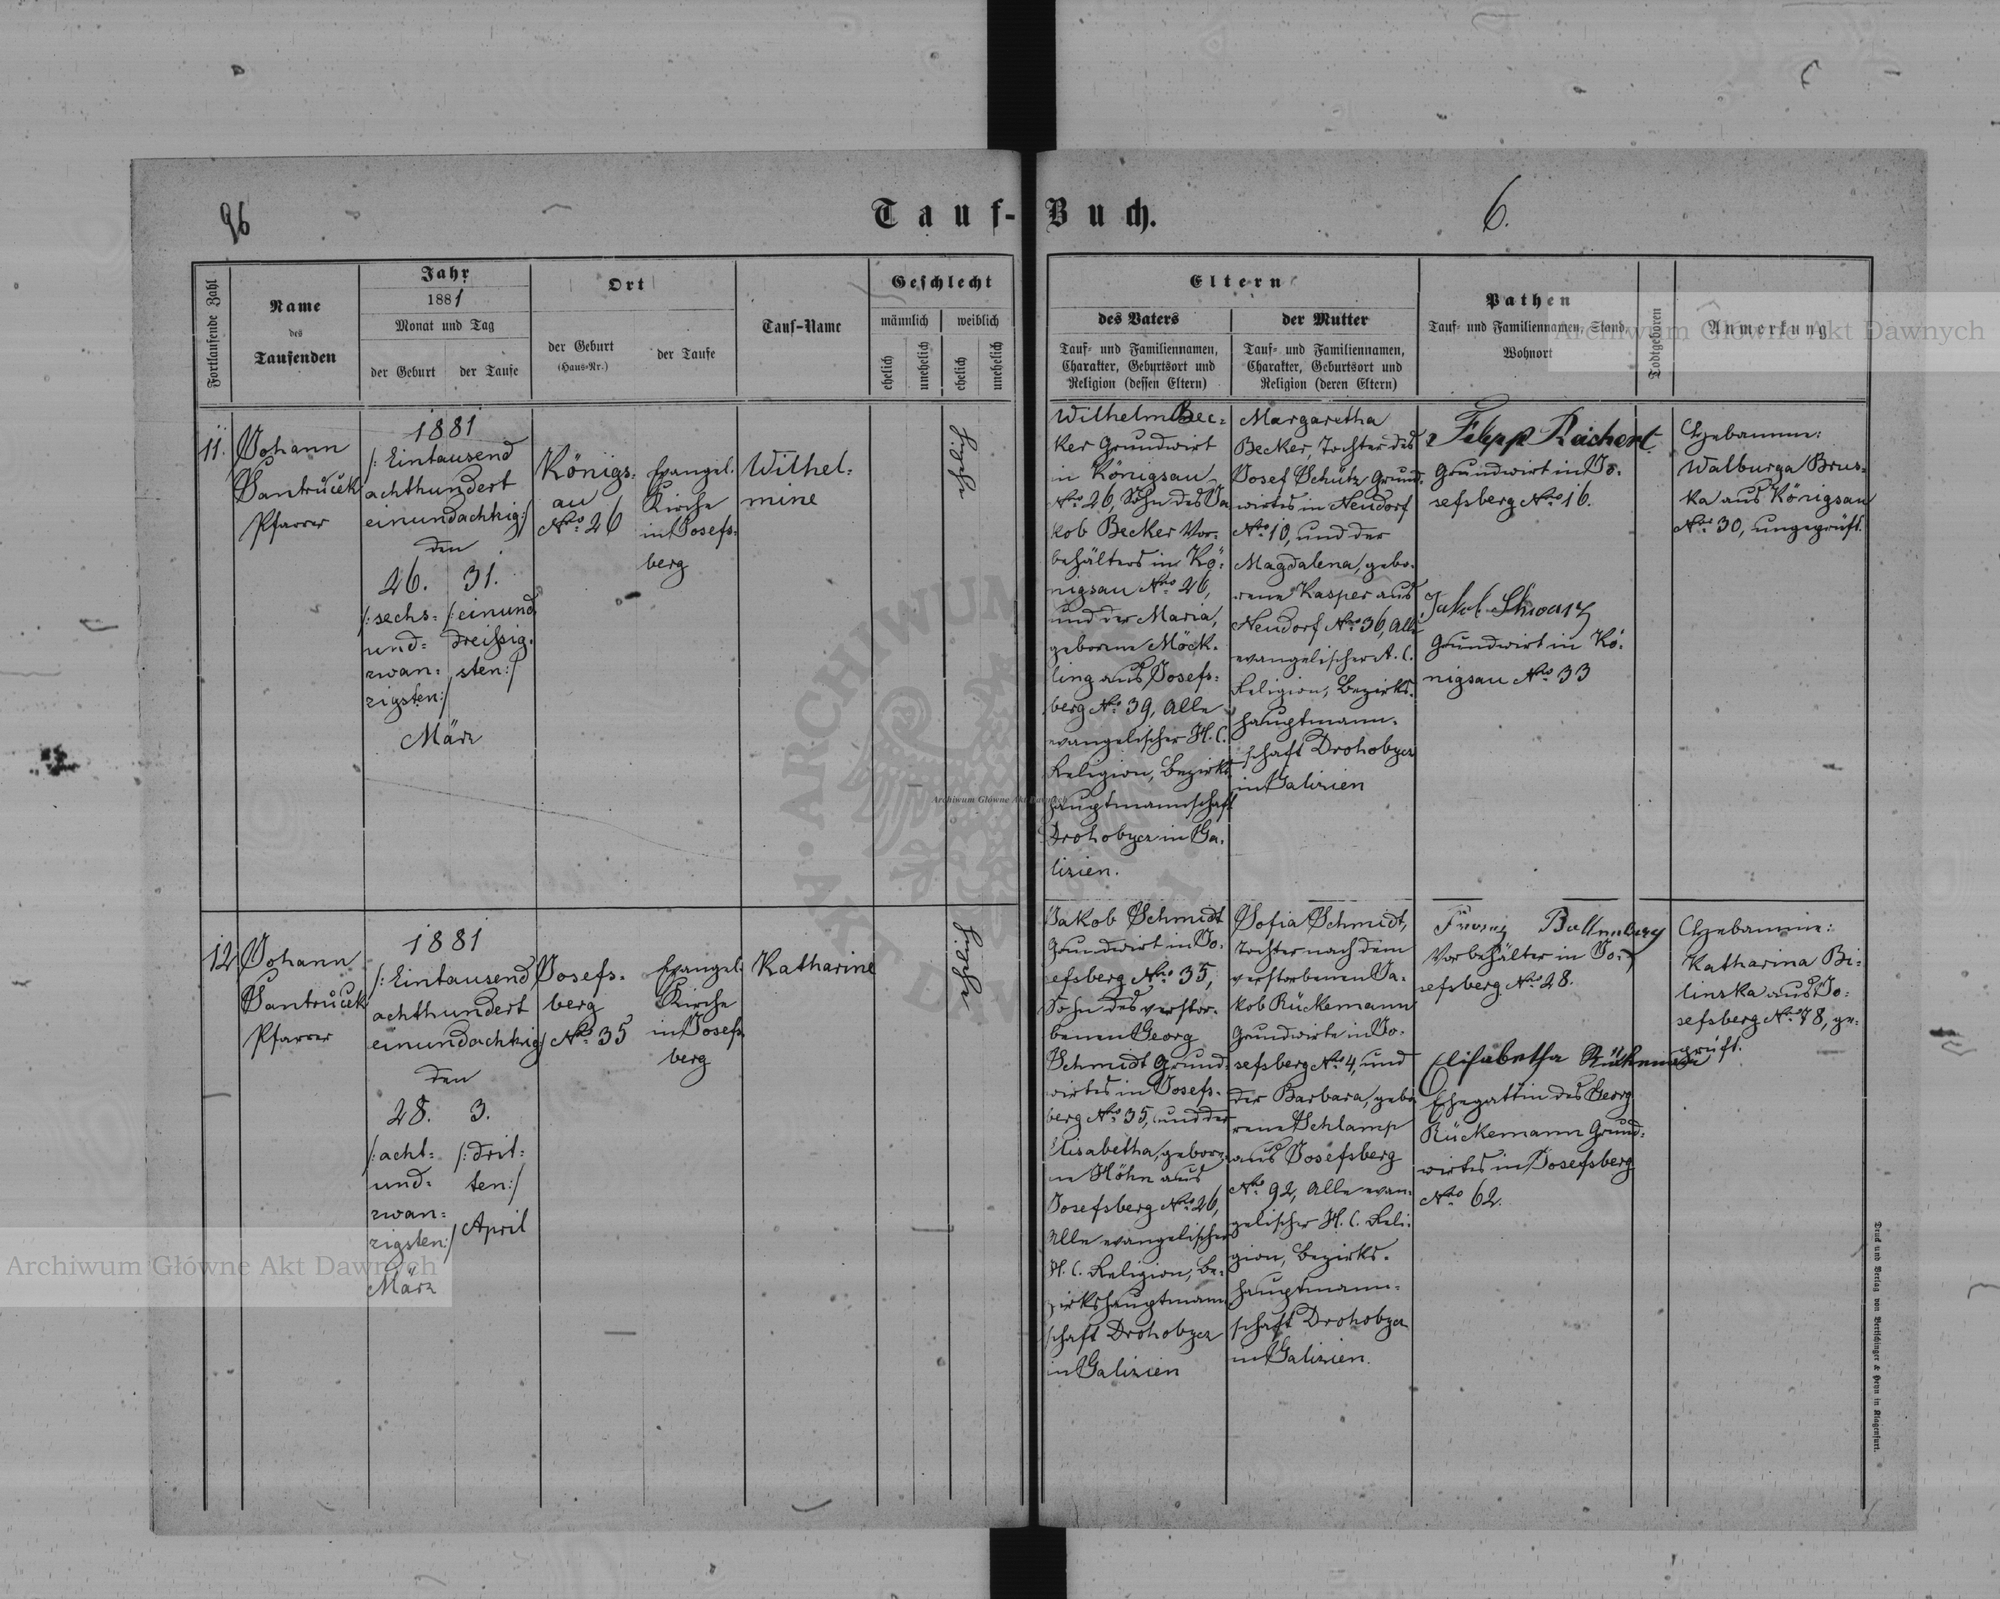 96
Tauf-Buch.
6.
Fortlaufende Zahl
Name
des
Taufenden
Jahr
1881
Monat und Tag
der Geburt
der Taufe
Ort
der Geburt
(Haus-Nr.)
der Taufe
Tauf-Name
Geschlecht
männlich
weiblich
ehelich
unehelich
ehelich
unehelich
Eltern
des Vaters
Tauf- und Familiennamen,
Charakter, Geburtsort und
Religion (dessen Eltern)
der Mutter
Tauf- und Familiennamen,
Charakter, Geburtsort und
Religion (deren Eltern)
Pathen
Tauf- und Familiennamen, Stand
Wohnort
Todtgeboren
Anmerkung
11.
Johann
Santrůček
Pfarrer
1881
/: Eintausend
achthundert
einundachtzig :/
den
26.
/: sechs=
und=
zwan=
zigsten :/
März
31.
/: einund
dreißig=
sten :/
Königs=
au
Nro 26
Evangel.
Kirche
in Josefs=
berg
Wilhel=
mine
ehelich
Wilhelm Bec=
ker Grundwirt
in Königsau
Nro 26, Sohn des Ja
kob Becker Vor=
behälters in Kö=
nigsau Nro 26,
und der Maria,
geborene Möck=
ling aus Josefs=
berg Nro 39, Alle
evangelischer H. C.
Religion, Bezirks
hauptmannschaft
Drohobycz in Ga=
lizien.
Margaretha
Becker, Tochter des
Josef Schütz Grund=
wirtes in Neudorf
Nro 10, und der
Magdalena, gebo=
rene Kasper aus
Neudorf Nro 36, Alle
evangelischer A. C.
Religion, Bezirks=
hauptmann=
schaft Drohobycz
in Galizien
Filipp Reichert
Grundwirt in Jo=
sefsberg Nro 16.
Jakob Schwarz
Grundwirt in Kö=
nigsau Nro 33
Hebamme:
Walburga Brus=
ka aus Königsau
Nro 30, ungeprüft.
12
Johann
Santrůček
Pfarrer
1881
/: Eintausend
achthundert
einundachtzig /
den
28.
/: acht=
und=
zwan=
zigsten :/
März
3.
/: drit=
ten :/
April
Josefs=
berg
Nro 35
Evangel.
Kirche
in Josefs
berg
Katharine
ehelich
Jakob Schmidt
Grundwirt in Jo=
sefsberg Nro 35,
Sohn des verstor=
benen Georg
Schmidt Grund=
wirtes in Josefs=
berg Nro 35, und der
Elisabetha, gebore
ne Höhn aus
Josefsberg Nro 26,
Alle evangelischer
H. C. Religion, Be=
zirkshauptmann
schaft Drohobycz
in Galizien
Sofia Schmidt,
Tochter nach dem
verstorbenen Ja=
kob Rückemann
Grundwirte in Jo=
sefsberg Nro 4, und
der Barbara, gebo
rene Schlamp
aus Josefsberg
Nro 92, Alle evan=
gelischer H. C. Reli=
gion, Bezirks=
hauptmann=
schaft Drohobycz
in Galizien.
Vorbehälter in Jo=
sefsberg Nro 28.
Elisabetha Rückemann
Ehegattin des Georg
Rückemann Grund=
wirtes in Josefsberg
Nro 62.
Hebamme:
Katharina Bi=
linska aus Jo=
sefsberg Nro 78, ge=
prüft.
Druck und Verlag von Bertschinger & Heyn in Klagenfurt.
Archiwum Główne Akt Dawnych
Archiwum Główne Akt Dawnych
Archiwum Główne Akt Dawnych